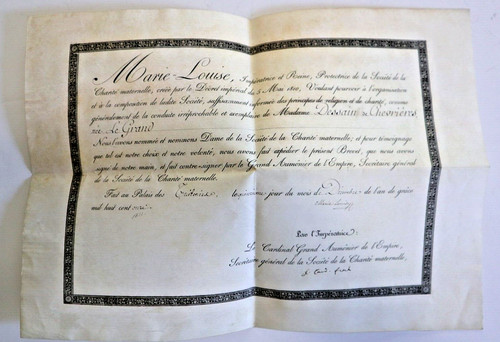 Marie-Louise, Impératrice et Reine, Protectrice de la Société de la
Charité maternelle, créée par le Décret impérial du 5 Mai 1810, Voulant pourvoir à l'organisation
et à la composition de ladite Société, suffisamment informée des principes de religion et de charité, comme
généralement de la conduite irréprochable et exemplaire de Madame Dessain
née Le Grand
Nous l'avons nommée et nommons Dame de la Société de la Charité maternelle; et pour témoignage
que tel est notre choix et notre volonté, nous avons fait expédier le présent Brevet, que nous avons
signé de notre main, et fait contre-signer par le Grand Aumônier de l'Empire, Secrétaire général
de la Société de la Charité maternelle.
Fait au Palais des Tuileries, le jour du mois de de l'an de grâce
mil huit cent
Par l'Impératrice:
Le Cardinal Grand Aumônier de l'Empire,
Secrétaire général de la Société de la Charité maternelle,